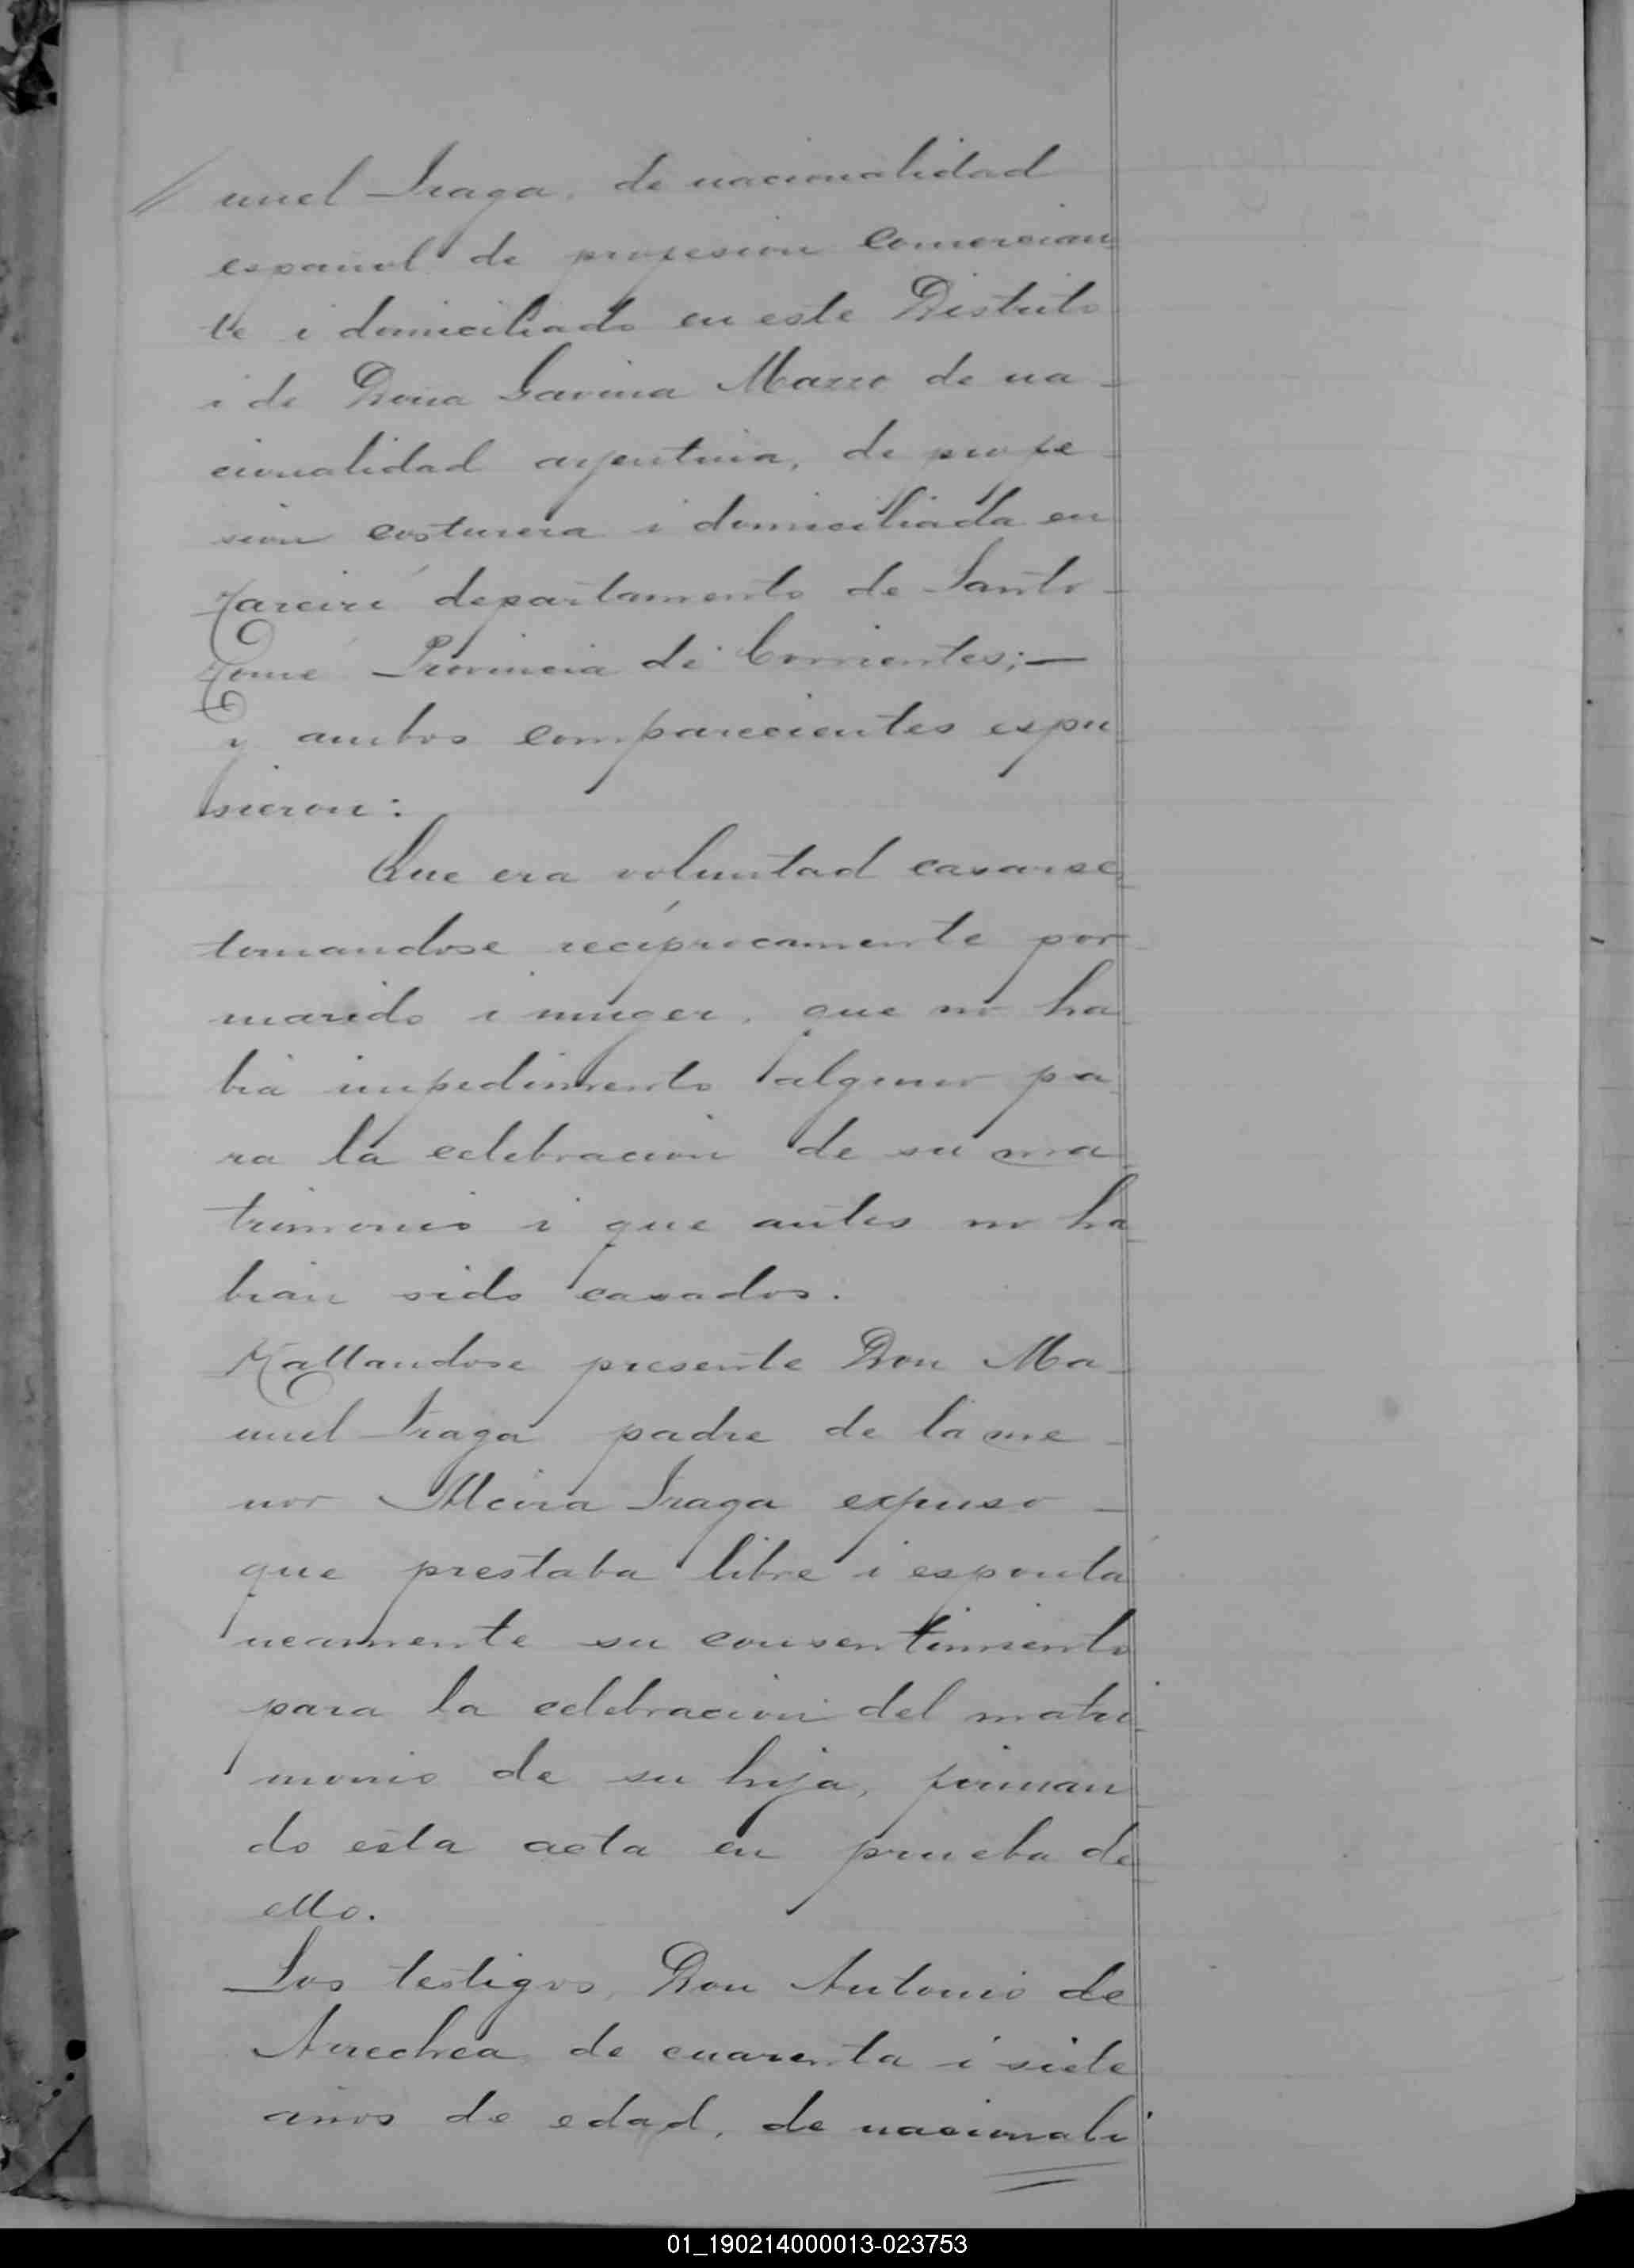 nuel Fraga, de nacionalidad
español de profesion Comercian
te i domiciliado en este Distrito
i de Doña Gavina Mazzo de na-
cionalidad arjentina, de profe-
sion costurera i domiciliada en
departamento de Santo-
Tomé Provincia de Corrientes;—
y ambos comparecientes espu
sieron:
Que era voluntad casarse
tomandose recíprocamente por
marido i muger, que no ha
bia impedimento alguno pa
ra la celebracion de su ma
trimonio i que antes no ha
bian sido casados.
Hallandose presente Don Ma-
nuel Fraga padre de la me-
nor Alcira Fraga expuso-
que prestaba libre i esponta
neamente su consentimiento
para la celebracion del matri
monio de su hija, firman
do esta acta en prueba de
ello.
Los testigos, Don Antonio de
Arrechea, de cuarenta i siete
años de edad, de nacionali
01_190214000013-023753